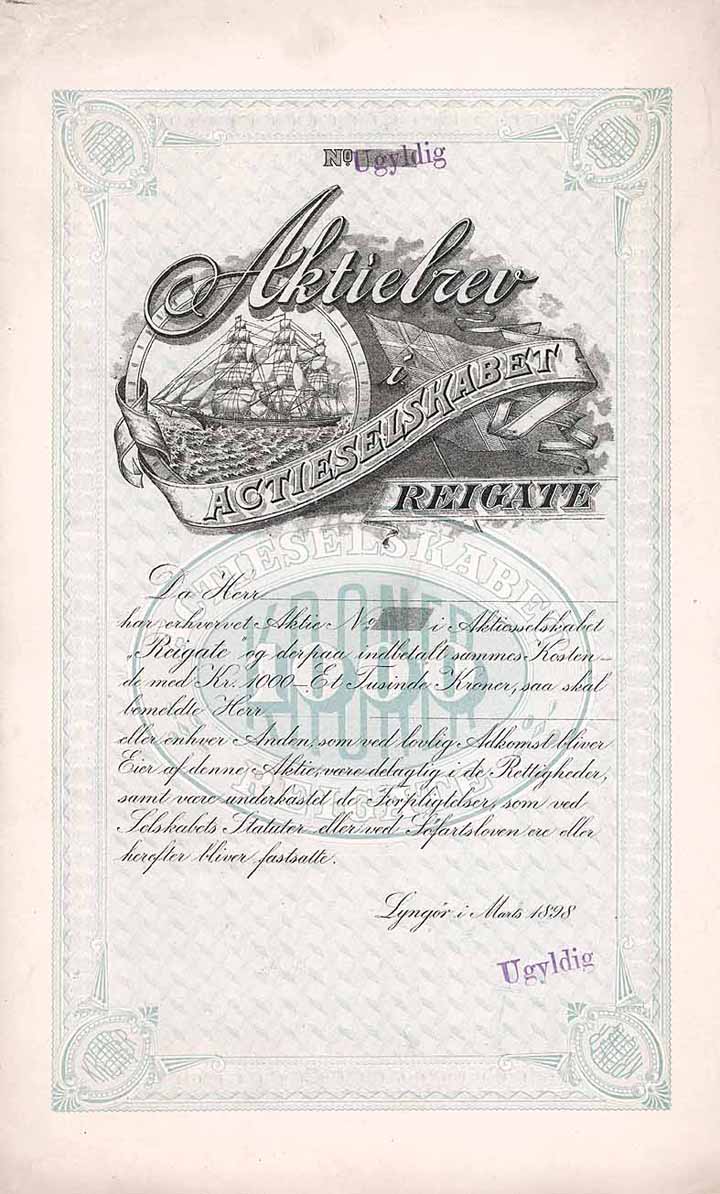 Nº Ugyldig
Aktiebrev
i
ACTIESELSKABET
REIGATE
Da Herr
har erhvervet Aktie Nº i Aktiesselskabet
„Reigate" og derpaa indbetalt sammes Kosten-
de med Kr. 1000 – Et Tusinde Kroner, saa skal
bemeldte Herr
eller enhver Anden, som ved lovlig Adkomst bliver
Eier af denne Aktie, være delagtig i de Rettigheder,
samt være underkastet de Forpligtelser, som ved
Selskabets Statuter eller ved Söfartsloven ere eller
herefter bliver fastsatte.
Lyngör i Marts 1898
Ugyldig
ACTIESELSKABET
KRONER
1000
KRONER
REIGATE